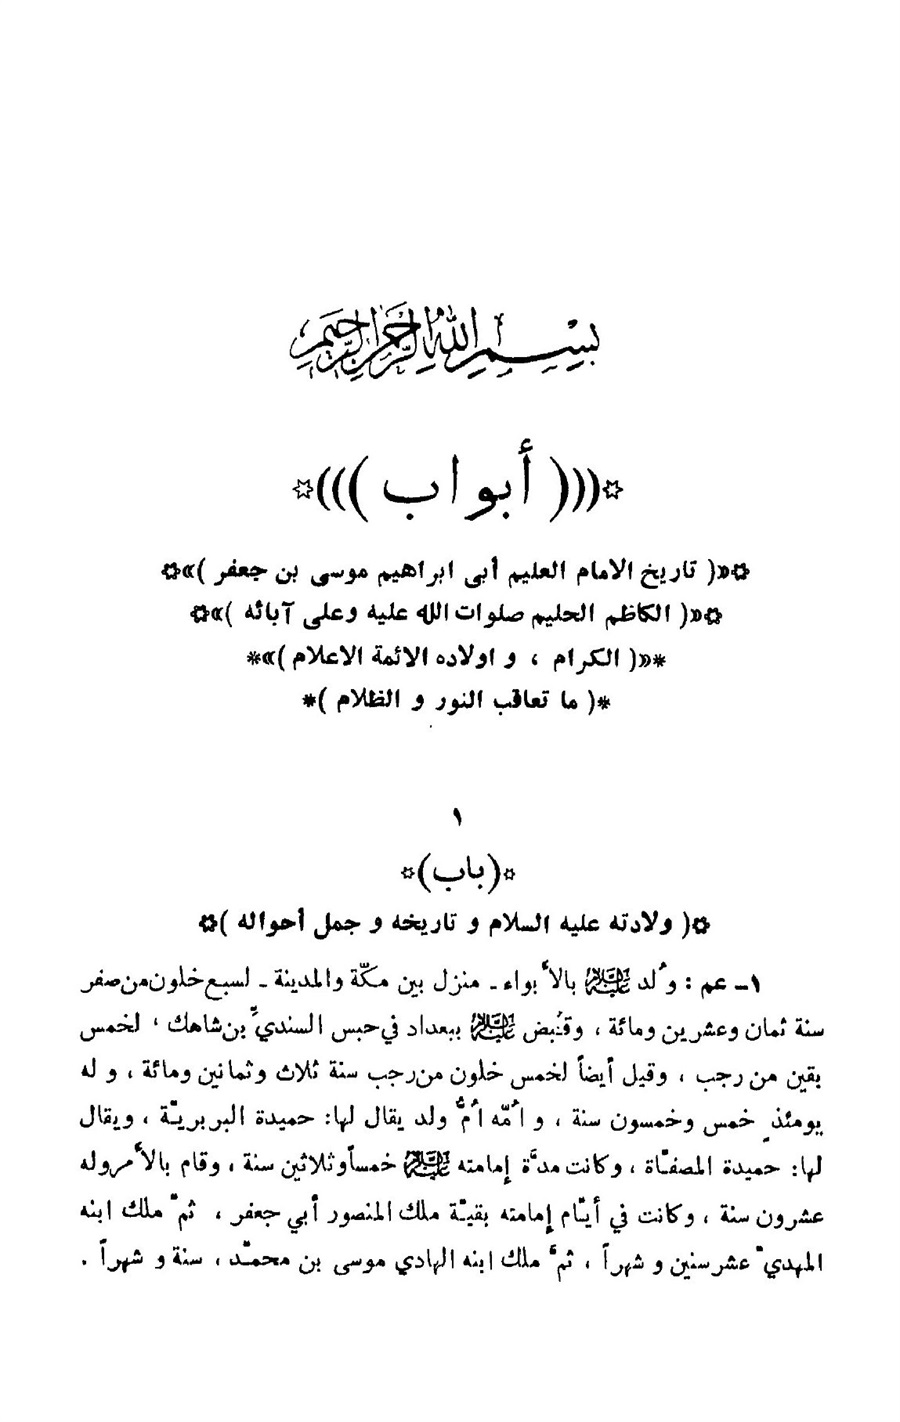 بسم الله الرحمن الرحيم
(((( أبواب ))))
«( تاريخ الامام العليم أبى ابراهيم موسى بن جعفر )»
«( الكاظم الحليم صلوات الله عليه وعلى آبائه )»
*«( الكرام ، و اولاده الائمة الاعلام )»*
*( ما تعاقب النور و الظلام )*
١
*(باب)*
( ولادته عليه السلام و تاريخه و جمل أحواله )
١ـ عم : وُلد عليه السلام بالأبواء ـ منزل بين مكّة والمدينة ـ لسبع خلون من صفر
سنة ثمان وعشرين ومائة ، وقُبض عليه السلام ببغداد في حبس السنديِّ بن شاهك ، لخمس
بقين من رجب ، وقيل أيضاً لخمس خلون من رجب سنة ثلاث وثمانين ومائة ، و له
يومئذٍ خمس وخمسون سنة ، و اُمّه اُمُّ ولد يقال لها: حميدة البربريّة ، ويقال
لها: حميدة المصفّاة ، وكانت مدَّة إمامته عليه السلام خمساً وثلاثين سنة ، وقام بالأمر وله
عشرون سنة ، وكانت في أيّام إمامته بقيّة ملك المنصور أبي جعفر ، ثمَّ ملك ابنه
المهديّ عشر سنين و شهراً ، ثمَّ ملك ابنه الهادي موسى بن محمّد ، سنة و شهراً .